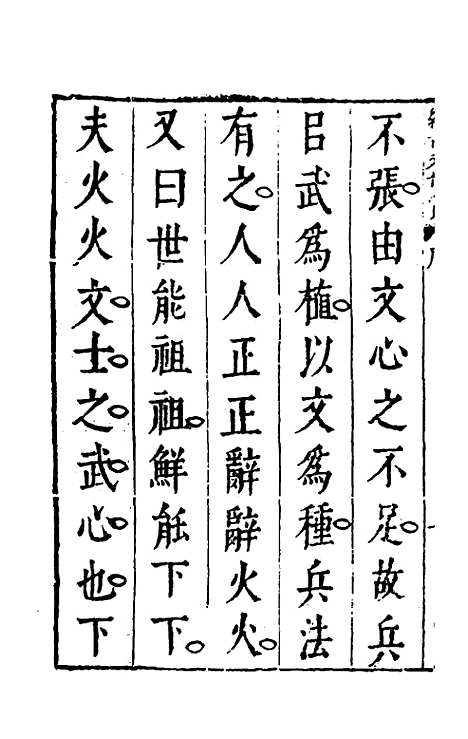 不張由文心之不足故兵
㠯武爲植以文爲種兵法
有之人人正正辭辭火火
又曰世能祖祖鮮能下下
夫火火文士之武心也下